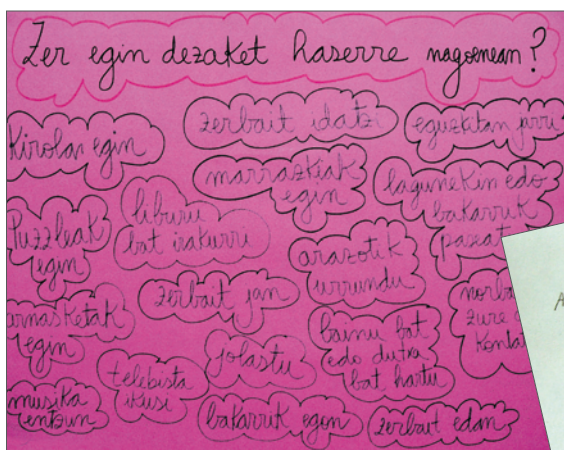 Zer egin dezaket haserre nagoenean?
Kirola egin
zerbait idatzi
eguzkitan jarri
marrazkiak
egin
lagunekin edo
bakarrik
paseat
Puzzleak
egin
liburu
bat irakurri
arazotik
urrundu
zerbait jan
arnasketak
egin
bainu bat
edo dutxa
bat hartu
zure
jolastu
telebista
ikusi
musika
entzun
bakarrik egon
zerbait edan